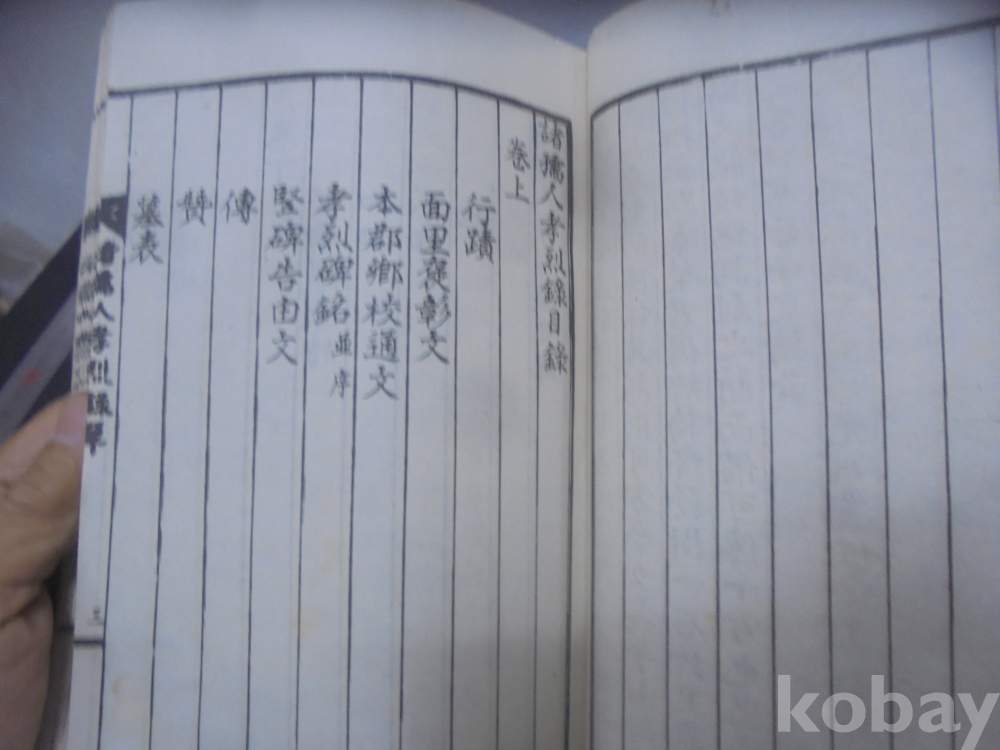 諸孺人孝烈錄目錄
卷上
行蹟
面里褒彰文
本郡鄉校通文
孝烈碑銘 並序
竪碑告由文
傳
贊
墓表
kobay